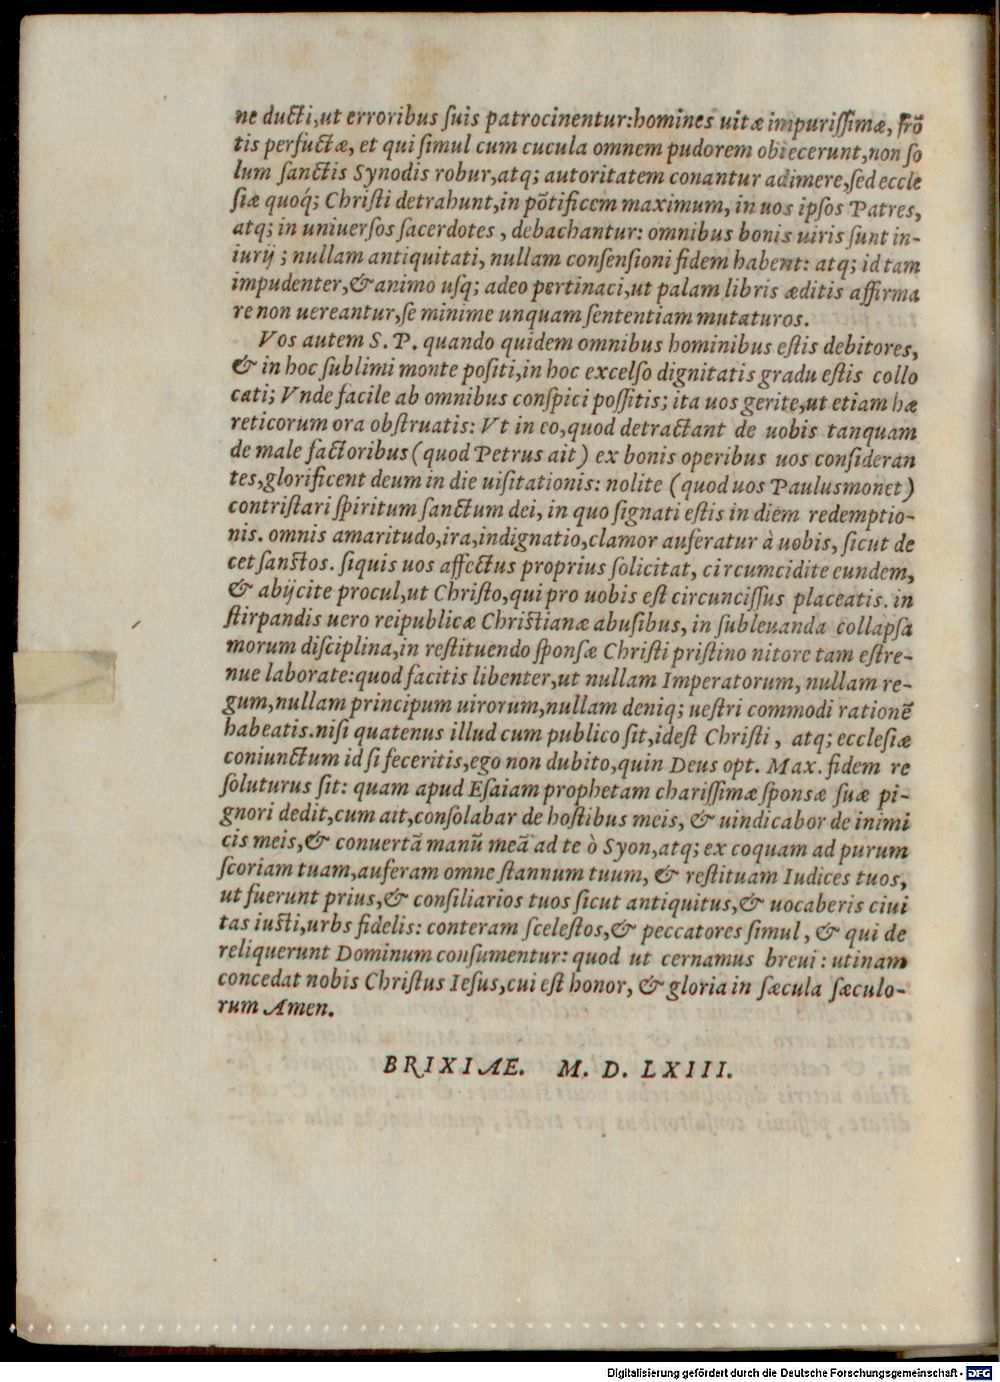 ne ducti,ut erroribus ſuis patrocinentur:homines uitæ impuriſſimæ, frõ
tis perfuctæ, et qui ſimul cum cucula omnem pudorem obiecerunt,non ſo
lum ſanctis Synodis robur,atq; autoritatem conantur adimere,ſed eccle
ſiæ quoq́; Chriſti detrahunt,in põtificem maximum, in uos ipſos Patres,
atq; in uniuerſos ſacerdotes , debachantur: omnibus bonis uiris ſunt in-
iurij ; nullam antiquitati, nullam conſenſioni fidem habent: atq; id tam
impudenter,& animo uſq; adeo pertinaci,ut palam libris æditis affirma
re non uereantur,ſe minime unquam ſententiam mutaturos.
Vos autem S. P. quando quidem omnibus hominibus eſtis debitores,
& in hoc ſublimi monte poſiti,in hoc excelſo dignitatis gradu eſtis collo
cati; Vnde facile ab omnibus conſpici poſſitis; ita uos gerite,ut etiam hæ
reticorum ora obſtruatis: Vt in eo,quod detractant de uobis tanquam
de male factoribus (quod Petrus ait) ex bonis operibus uos conſideran
tes,glorificent deum in die uiſitationis: nolite (quod uos Paulusmonet)
contriſtari ſpiritum ſanctum dei, in quo ſignati eſtis in diem redemptio-
nis. omnis amaritudo,ira,indignatio,clamor auferatur à uobis, ſicut de
cet ſanctos. ſiquis uos affectus proprius ſolicitat, circumcidite eundem,
& abijcite procul,ut Chriſto,qui pro uobis eſt circunciſſus placeatis. in
ſtirpandis uero reipublicæ Chriſtianæ abuſibus, in ſubleuanda collapſa
morum diſciplina,in reſtituendo ſponſæ Chriſti priſtino nitore tam eſtre-
nue laborate:quod facitis libenter,ut nullam Imperatorum, nullam re-
gum,nullam principum uirorum,nullam deniq; ueſtri commodi rationẽ
habeatis.niſi quatenus illud cum publico ſit,ideſt Chriſti , atq; eccleſiæ
coniunctum id ſi feceritis,ego non dubito,quin Deus opt. Max. fidem re
ſoluturus ſit: quam apud Eſaiam prophetam chariſſimæ ſponsæ ſuæ pi-
gnori dedit,cum ait,conſolabar de hoſtibus meis, & uindicabor de inimi
cis meis,& conuertã manũ meã ad te ò Syon,atq; ex coquam ad purum
ſcoriam tuam,auferam omne ſtannum tuum, & reſtituam Iudices tuos,
ut fuerunt prius,& conſiliarios tuos ſicut antiquitus,& uocaberis ciui
tas iuſti,urbs fidelis: conteram ſceleſtos,& peccatores ſimul, & qui de
reliquerunt Dominum conſumentur: quod ut cernamus breui : utinam
concedat nobis Chriſtus Ieſus,cui eſt honor, & gloria in ſæcula ſæculo-
rum Amen.
BRIXIAE. M. D. LXIII.
Digitalisierung gefördert durch die Deutsche Forschungsgemeinschaft - DFG